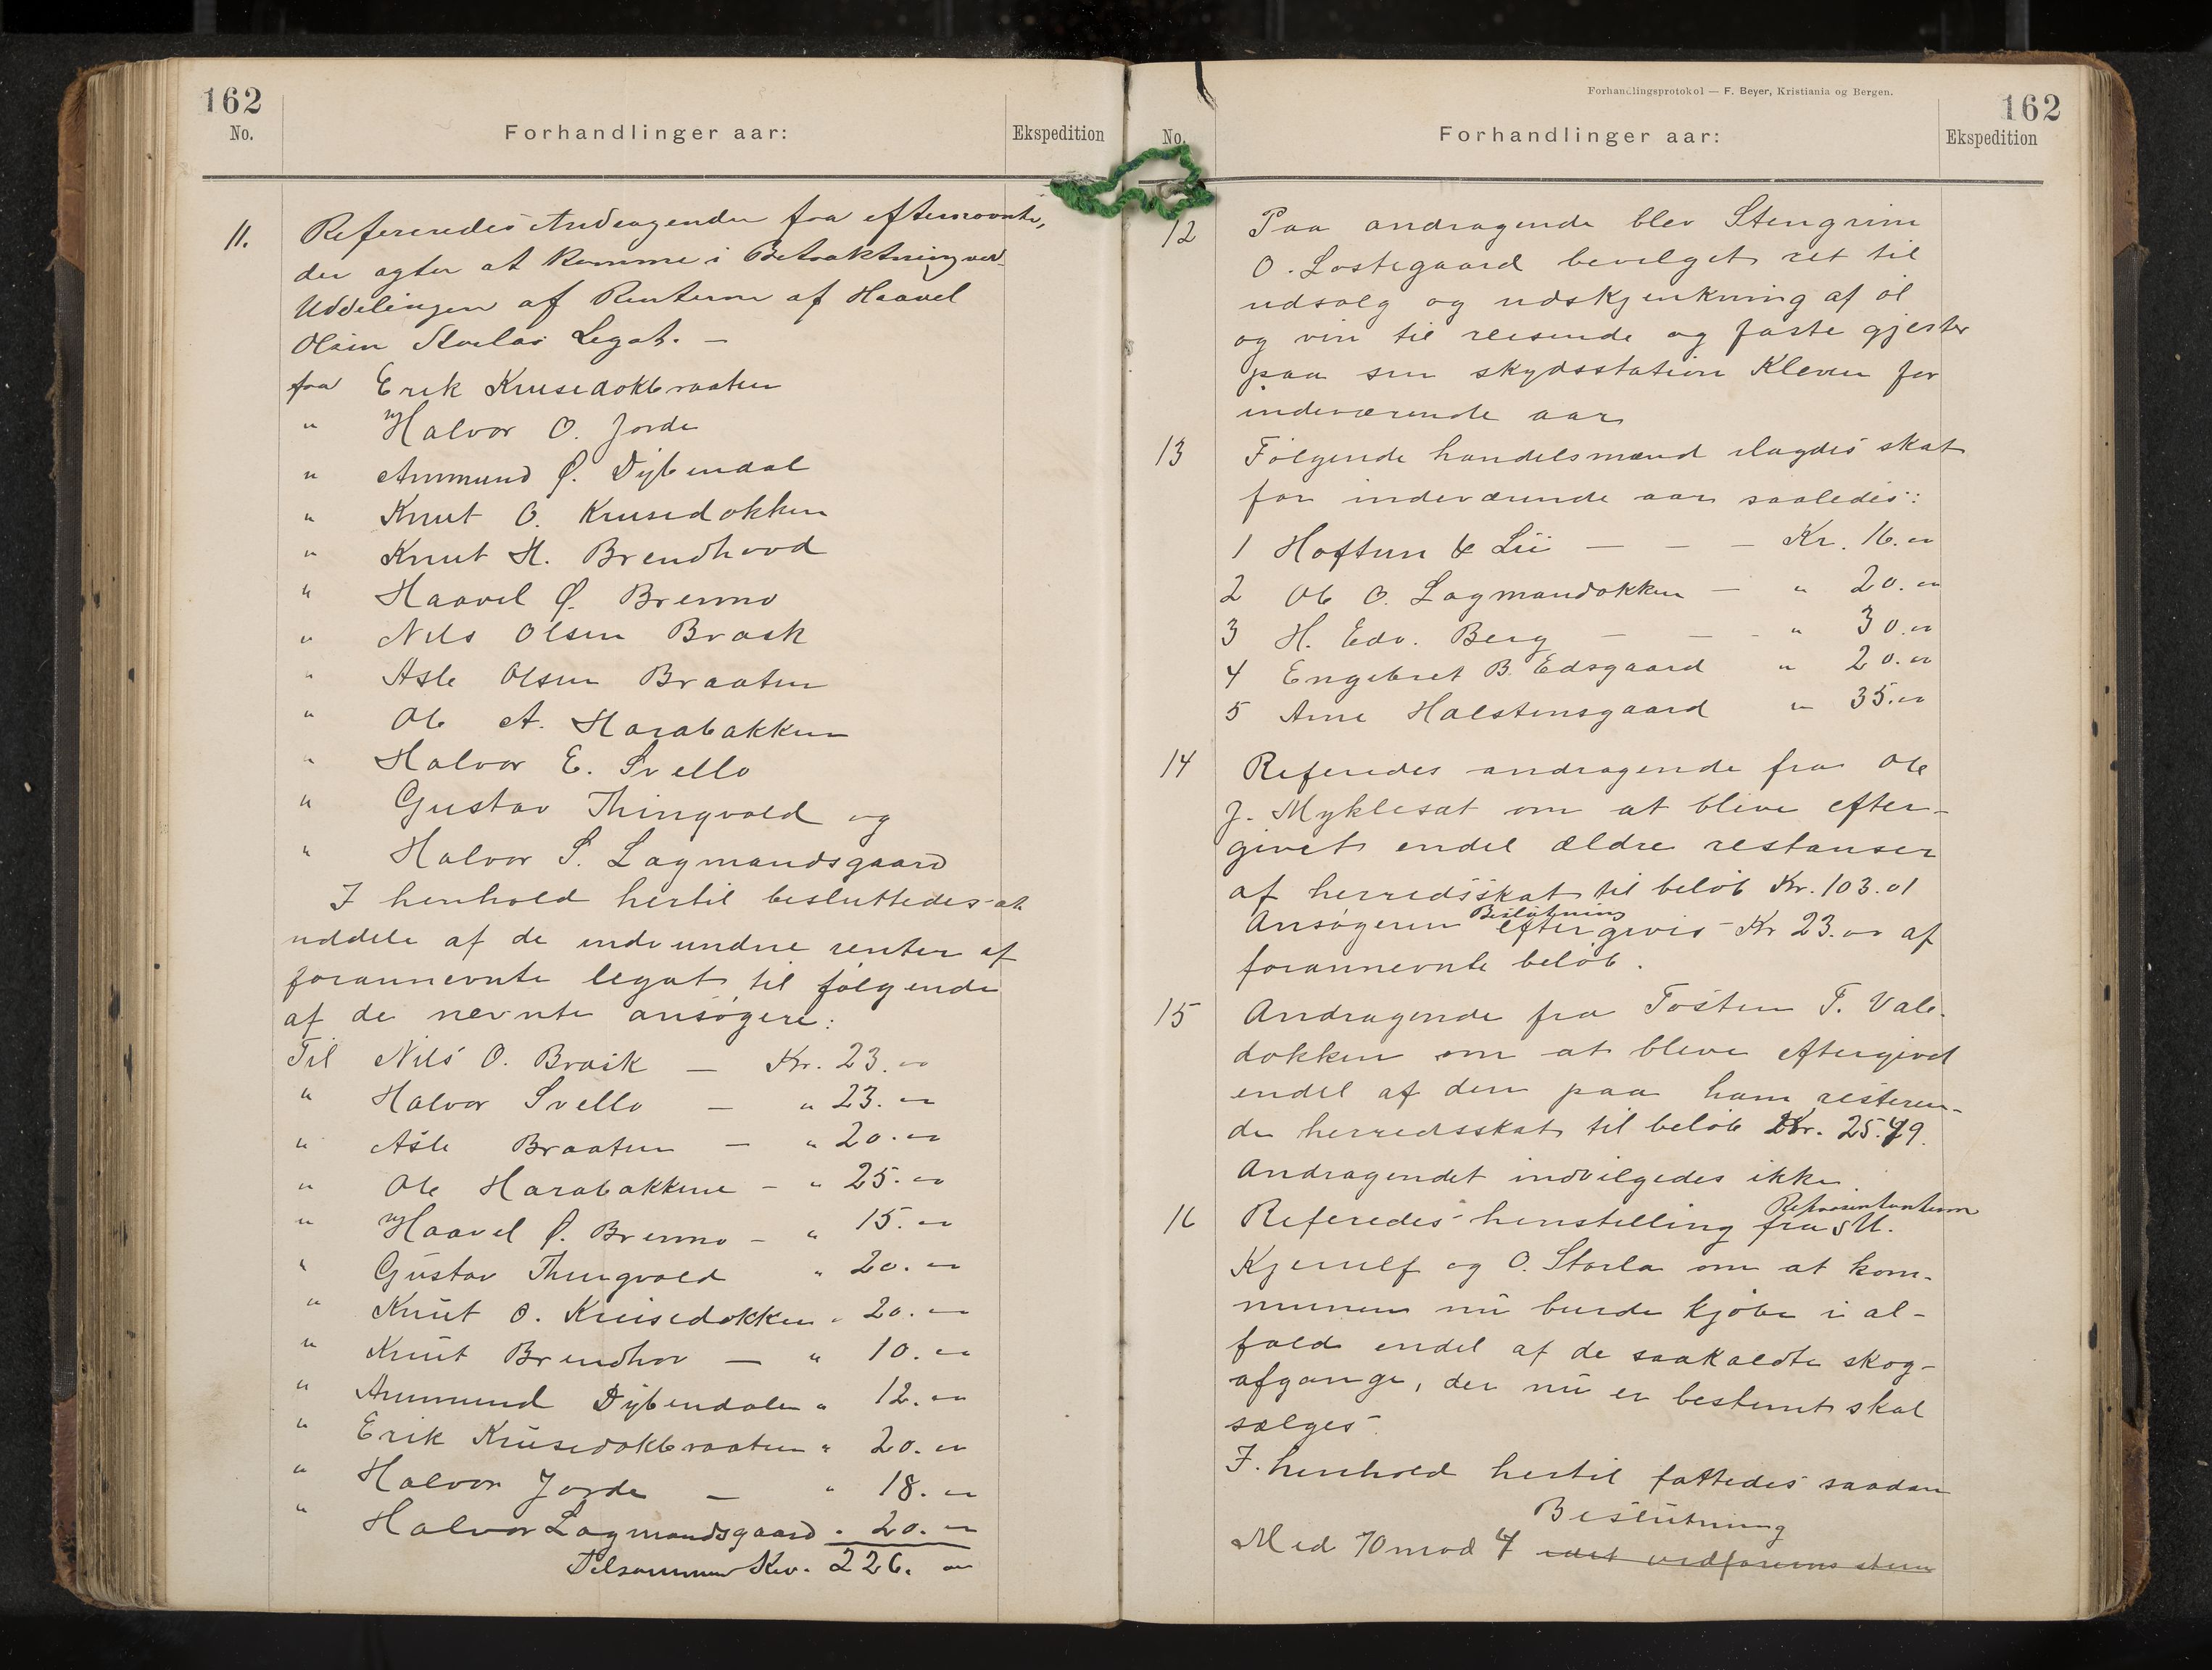 162
No.
Forhandlinger aar:
Ekspedition
11. Refereredes Andragender fra efternevnte,
der agter at komme i Betraktning ved
Uddelingen af Renterne af Haavel
Olsen Storlas Legat. —
fra Erik Krusedokbraaten
" Halvor O. Jorde
" Ammund Ø. Dybendal
" Knut O. Krusedokken
" Knut H. Brendhovd
" Haavel Ø. Brenno
" Nils Olsen Brask
" Asle Olsen Braaten
" Ole A. Harabakken
" Halvor E. Svello
" Gustav Thingvold og
" Halvor S. Lagmandsgaard
I henhold hertil besluttedes at
uddele af de indvundne renter af
forannevnte legat til følgende
af de nevnte ansøgere:
Til Nils O. Brask — Kr. 23. "
" Halvor Svello — " 23. "
" Asle Braaten — " 20. "
" Ole Harabakkene — " 25. "
" Haavel Ø. Brenno — " 15. "
" Gustav Thingvold " 20. "
" Knut O. Krusedokken " 20. "
" Knut Brendhov — " 10. "
" Ammund Dybendalen " 12. "
" Erik Krusedokbraaten " 20. "
" Halvor Jorde — " 18. "
" Halvor Lagmandsgaard " 20. "
Tilsammen Kr. 226. "
Forhandlingsprotokol — F. Beyer, Kristiania og Bergen.
162
No.
Forhandlinger aar:
Ekspedition
12 Paa andragende blev Stengrim
O. Lostegaard bevilget ret til
udsalg og udskjenkning af øl
og vin til reisende og faste gjester
paa sin skydsstation Kleven for
indeværende aar
13 Følgende handelsmænd ilagdes skat
for indeværende aar saaledes:
1 Hoftun & Lii — — — Kr. 16. "
2 Ole O. Lagmandokken — " 20. "
3 H. Edv. Berg — — " 30. "
4 Engebret B. Edsgaard " 20. "
5 Arne Halstensgaard " 35. "
14 Referedes andragende fra Ole
J. Myklesat om at blive efter-
givet endel ældre restanser
af herredsskat til beløb Kr. 103.01
Beslutning
Ansøgeren eftergives Kr 23. " af
forannevnte beløb.
15 Andragende fra Tosten T. Vale-
dokken om at blive eftergivet
endel af den paa ham resteren-
de herredsskat til beløb Kr. 25.79.
Andragendet indvilgedes ikke.
Repræsentanterne
16 Referedes henstilling fra M.
Kjerulf og O. Storla om at kom-
munen nu burde kjøbe i al-
fald endel af de saakaldte skog-
afgange, der nu er bestemt skal
sælges.
I henhold hertil fattedes saadan
Beslutning
Med 10 mod 4 idet ordførerens stem